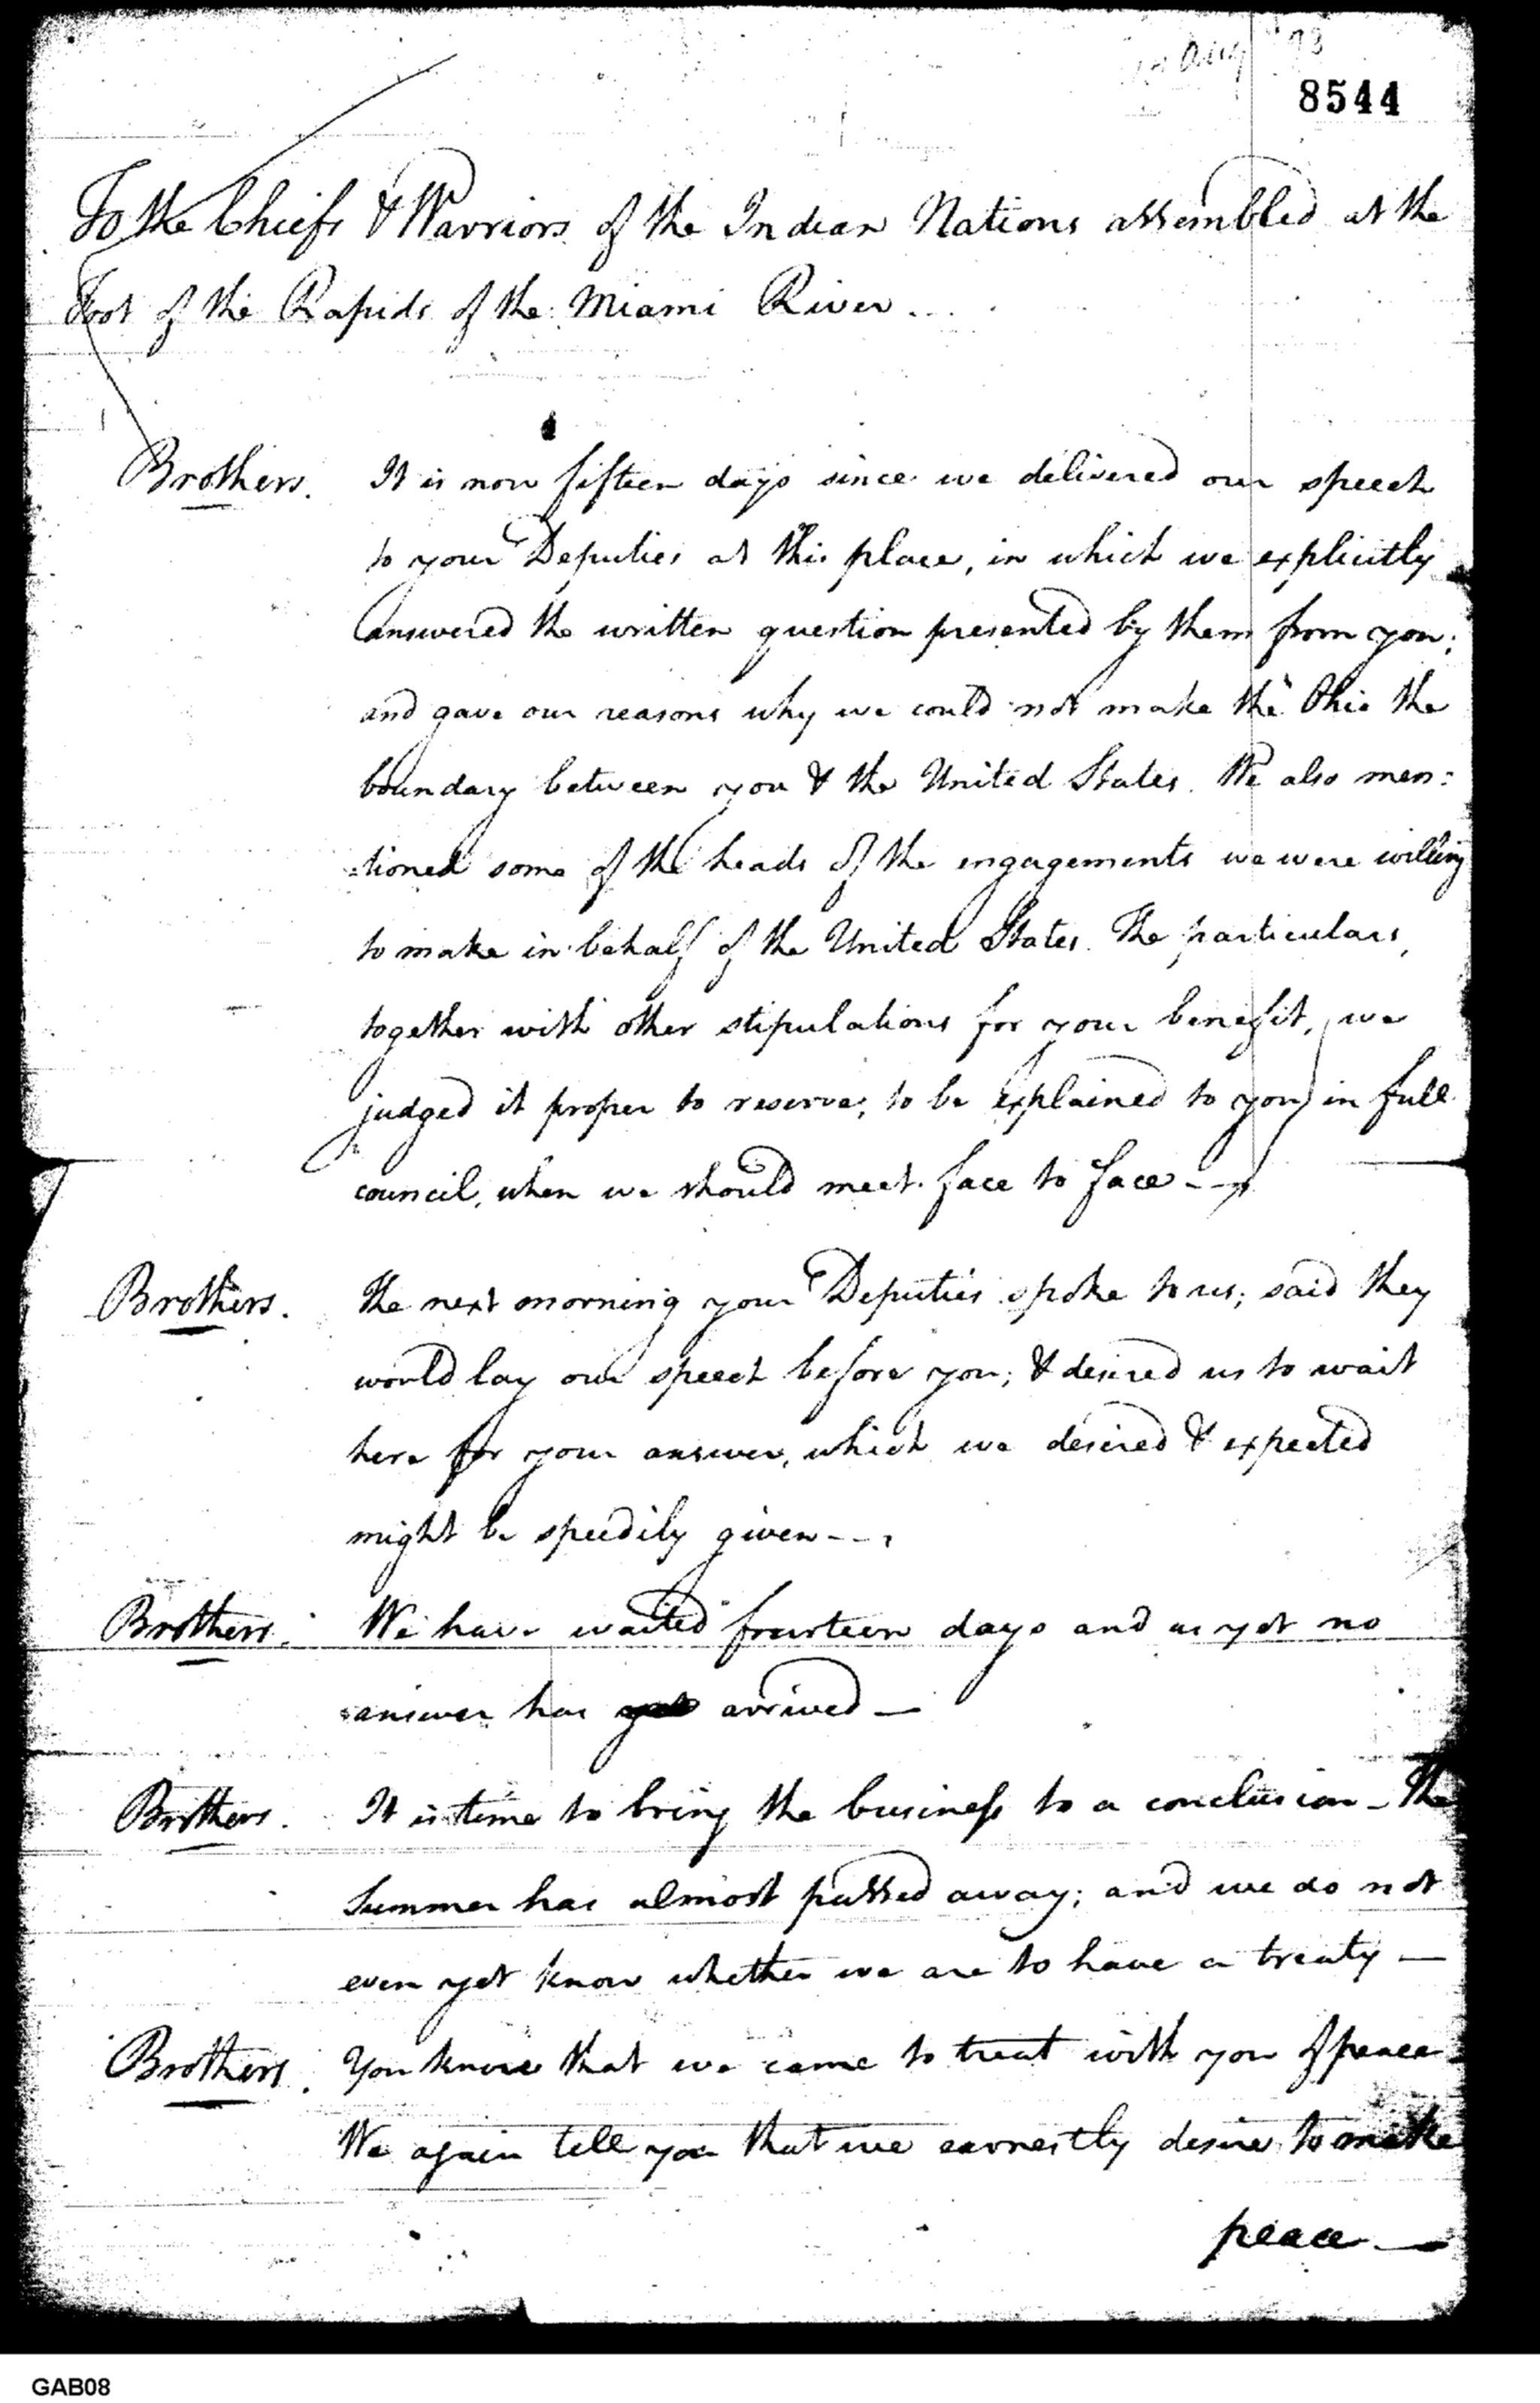 Aug 93
8544
To the Chiefs & Warriors of the Indian Nations assembled at the
Foot of the Rapids of the Miami River...
Brothers. It is now fifteen days since we delivered our speech
to your Deputies at this place, in which we explicitly
answered the written question presented by them from you;
and gave our reasons why we could not make the Ohio the
boundary between you & the United States. We also men:
:tioned some of the heads of the engagements we were willing
to make in behalf of the United States. The particulars,
together with other stipulations for your benefit, we
judged it proper to reserve, to be explained to you in full
council, when we should meet face to face --
Brothers. The next morning your Deputies spoke to us; said they
would lay our speech before you; & desired us to wait
here for your answer, which we desired & expected
might be speedily given --.
Brothers. We have waited fourteen days and as yet no
answer has yet arrived —
Brothers. It is time to bring the business to a conclusion - The
Summer has almost passed away; and we do not
even yet know whether we are to have a treaty —
Brothers. You know that we came to treat with you of peace -
We again tell you that we earnestly desire to make
peace —
GAB08